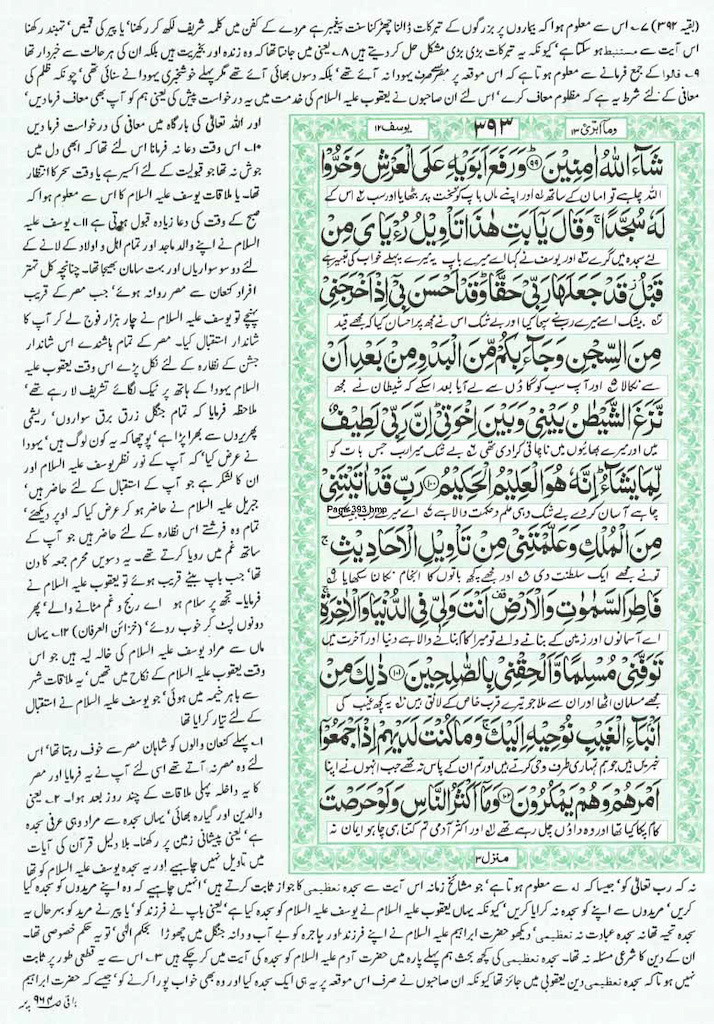 (بقیہ ۳۹۲) ۷؂ اس سے معلوم ہوا کہ بیماروں پر بزرگوں کے تبرکات ڈالنا چھڑکنا سنت پیغمبر ہے مردے کے کفن میں کلمہ شریف لکھ کر رکھنا' یا پیر کی قمیص' تہبند رکھنا
اس آیت سے مستنبط ہو سکتا ہے' کیونکہ یہ تبرکات بڑی بڑی مشکل حل کر دیتے ہیں ۸؂ یعنی میں جانتا تھا کہ وہ زندہ اور بخیریت ہیں بلکہ ان کی ہر حالت سے خبردار تھا
۹؂ قالوا کے جمع فرمانے سے معلوم ہوتا ہے کہ اس موقعہ پر صرف یہودا نہ آئے تھے' بلکہ دسوں بھائی آئے تھے مگر پہلے خوشخبری یہودا نے سنائی تھی' چونکہ ظلم کی
معافی کے لئے شرط یہ ہے کہ مظلوم معاف کرے' اس لئے ان صاحبوں نے یعقوب علیہ السلام کی خدمت میں یہ درخواست پیش کی یعنی ہم کو آپ بھی معاف فرما دیں'
اور اللہ تعالیٰ کی بارگاہ میں معافی کی درخواست فرما دیں
۱۰؂ اس وقت دعا نہ فرمانا اس لئے تھا کہ ابھی دل میں
جوش نہ تھا جو قبولیت کے لئے اکسیر ہے یا وقت سحر کا انتظار
تھا۔ یا ملاقات یوسف علیہ السلام کا اس سے معلوم ہوا کہ
صبح کے وقت کی دعا زیادہ قبول ہوتی ہے ۱۱؂ یوسف علیہ
السلام نے اپنے والد ماجد اور تمام اہل و اولاد کے لانے کے
لئے دو سو سواریاں اور بہت سامان بھیجا تھا۔ چنانچہ کل بہتر
افراد کنعان سے مصر روانہ ہوئے' جب مصر کے قریب
پہنچے تو یوسف علیہ السلام نے چار ہزار فوج لے کر آپ کا
شاندار استقبال کیا۔ مصر کے تمام باشندے اس شاندار
جشن کے نظارہ کے لئے نکل پڑے اس وقت یعقوب علیہ
السلام یہودا کے ہاتھ پر ٹیک لگائے تشریف لا رہے تھے'
ملاحظہ فرمایا کہ تمام جنگل زرق برق سواروں' ریشمی
پھریروں سے بھرا پڑا ہے' پوچھا کہ یہ کون لوگ ہیں' یہودا
نے عرض کیا' کہ آپ کے نور نظر یوسف علیہ السلام اور
ان کا لشکر ہے جو آپ کے استقبال کے لئے حاضر ہیں'
جبریل علیہ السلام نے حاضر ہو کر عرض کیا کہ اوپر دیکھئے'
تمام وہ فرشتے اس نظارہ کے لئے حاضر ہیں جو آپ کے
ساتھ غم میں رویا کرتے تھے۔ یہ دسویں محرم جمعہ کا دن
تھا' جب باپ بیٹے قریب ہوئے تو یعقوب علیہ السلام نے
فرمایا۔ تجھ پر سلام ہو اے رنج و غم مٹانے والے' پھر
دونوں لپٹ کر خوب روئے' (خزائن العرفان) ۱۲؂ یہاں
ماں سے مراد یوسف علیہ السلام کی خالہ لیہ ہیں جو اس
وقت یعقوب علیہ السلام کے نکاح میں تھیں' یہ ملاقات شہر
سے باہر خیمہ میں ہوئی' جو یوسف علیہ السلام نے استقبال
کے لئے تیار کرایا تھا
۱؂ پہلے کنعان والوں کو شاہان مصر سے خوف رہتا تھا' اس
لئے وہ مصر نہ آتے تھے اسی لئے آپ نے یہ فرمایا اور مصر
کا یہ داخلہ پہلی ملاقات کے چند روز بعد ہوا۔ ۲؂ یعنی
والدین اور گیارہ بھائی' یہاں سجدہ سے مراد وہی عرفی سجدہ
ہے' یعنی پیشانی زمین پر رکھنا۔ بلا دلیل قرآن کی آیات
میں تاویل نہیں چاہیے اور یہ سجدہ یوسف علیہ السلام کو تھا
وما ابرئ ۱۳
۳۹۳
یوسف ۱۲
شَآءَ اللّٰهُ اٰمِنِيْنَ ﴿۹۹﴾ وَرَفَعَ اَبَوَيْهِ عَلَى الْعَرْشِ وَخَرُّوْا
اللہ چاہے تو امان کے ساتھ ؂ اور اپنے ماں باپ کو تخت پر بٹھایا اور سب ؂ اس کے
لَهٗ سُجَّدًا ۚ وَقَالَ يٰٓاَبَتِ هٰذَا تَاْوِيْلُ رُءْيَايَ مِنْ
لئے سجدہ میں گرے ؂ اور یوسف نے کہا اے میرے باپ یہ میرے پہلے خواب کی تعبیر ہے
قَبْلُ ۫ قَدْ جَعَلَهَا رَبِّيْ حَقًّا ؕ وَقَدْ اَحْسَنَ بِيْٓ اِذْ اَخْرَجَنِيْ
؂ بیشک اسے میرے رب نے سچا کیا اور بے شک اس نے مجھ پر احسان کیا کہ مجھے قید
مِنَ السِّجْنِ وَجَآءَ بِكُمْ مِّنَ الْبَدْوِ مِنْۢ بَعْدِ اَنْ
سے نکالا ؂ اور آپ سب کو گاؤں سے لے آیا بعد اسکے کہ شیطان نے مجھ
نَّزَغَ الشَّيْطٰنُ بَيْنِيْ وَبَيْنَ اِخْوَتِيْ ؕ اِنَّ رَبِّيْ لَطِيْفٌ
میں اور میرے بھائیوں میں ناچاقی کرا دی تھی ؂ بے شک میرا رب جس بات کو
لِّمَا يَشَآءُ ؕ اِنَّهٗ هُوَ الْعَلِيْمُ الْحَكِيْمُ ﴿۱۰۰﴾ رَبِّ قَدْ اٰتَيْتَنِيْ
Page-393.bmp
چاہے آسان کر دے بے شک وہی علم و حکمت والا ہے ؂ اے میرے رب بیشک
مِنَ الْمُلْكِ وَعَلَّمْتَنِيْ مِنْ تَاْوِيْلِ الْاَحَادِيْثِ ۚ
تو نے مجھے ایک سلطنت دی ؂ اور مجھے کچھ باتوں کا انجام نکالنا سکھایا ؂
فَاطِرَ السَّمٰوٰتِ وَالْاَرْضِ ۟ اَنْتَ وَلِيّٖ فِي الدُّنْيَا وَالْاٰخِرَةِ ۚ
اے آسمانوں اور زمین کے بنانے والے تو میرا کام بنانے والا ہے دنیا اور آخرت میں
تَوَفَّنِيْ مُسْلِمًا وَّاَلْحِقْنِيْ بِالصّٰلِحِيْنَ ﴿۱۰۱﴾ ذٰلِكَ مِنْ
مجھے مسلمان اٹھا اور ان سے ملا جو تیرے قرب خاص کے لائق ہیں ؂ یہ کچھ غیب کی
اَنْۢبَآءِ الْغَيْبِ نُوْحِيْهِ اِلَيْكَ ۚ وَمَا كُنْتَ لَدَيْهِمْ اِذْ اَجْمَعُوْٓا
خبریں ہیں جو ہم تمہاری طرف وحی کرتے ہیں اور تم ان کے پاس نہ تھے جب انہوں نے اپنا
اَمْرَهُمْ وَهُمْ يَمْكُرُوْنَ ﴿۱۰۲﴾ وَمَآ اَكْثَرُ النَّاسِ وَلَوْ حَرَصْتَ
کام پکا کیا تھا اور وہ داؤں چل رہے تھے ؂ اور اکثر آدمی تم کتنا ہی چاہو ایمان نہ
منزل ۳
نہ کہ رب تعالیٰ کو' جیسا کہ لہ سے معلوم ہوتا ہے' جو مشائخ زمانہ اس آیت سے سجدہ تعظیمی کا جواز ثابت کرتے ہیں' انہیں چاہیے کہ وہ اپنے مریدوں کو سجدہ کیا
کریں' مریدوں سے اپنے کو سجدہ نہ کرایا کریں' کیونکہ یہاں یعقوب علیہ السلام نے یوسف علیہ السلام کو سجدہ کیا ہے' یعنی باپ نے فرزند کو' یا پیر نے مرید کو بہرحال یہ
سجدہ تحیۃ تھا نہ سجدہ عبادت نہ تعظیمی' دیکھو حضرت ابراہیم علیہ السلام نے اپنے فرزند اور ہاجرہ کو بے آب و دانہ جنگل میں چھوڑا بحکم الٰہی' تو یہ حکم خصوصی تھا۔
ان کے دین کا شرعی مسئلہ نہ تھا۔ سجدہ تعظیمی کی کچھ بحث ہم پہلے پارہ میں حضرت آدم علیہ السلام کو سجدہ کی آیت میں کر چکے ہیں ۳؂ اس سے یہ قطعی طور پر ثابت
نہیں ہوتا کہ سجدہ تعظیمی دین یعقوبی میں جائز تھا کیونکہ ان صاحبوں نے صرف اس موقعہ پر یہ ہی ایک سجدہ کیا اور وہ بھی خواب پورا کرنے کو' جیسے کہ حضرت ابراہیم
باقی صفحہ ۹۶۴ پر